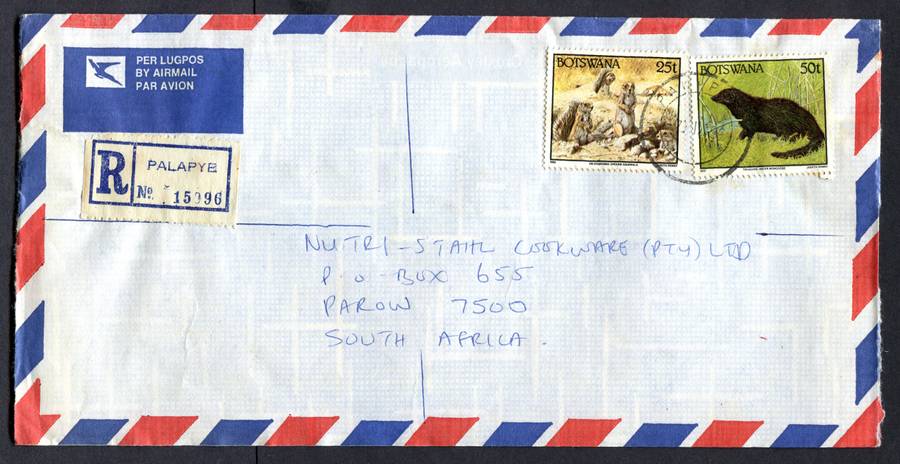 PER LUGPOS
BY AIRMAIL
PAR AVION
R
PALAPYE
No. 15996
BOTSWANA 25t
BOTSWANA 50t
NUTRI-STAHL COOKWARE (PTY) LTD
P O BOX 655
PAROW 7500
SOUTH AFRICA.